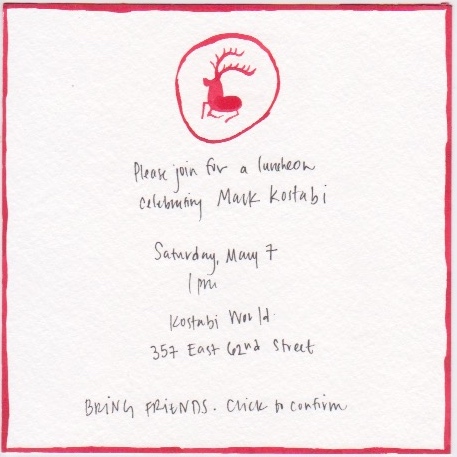 Please join for a luncheon
celebrating Mark Kostabi
Saturday, May 7
1pm
Kostabi World
357 East 62nd Street
BRING FRIENDS. Click to confirm